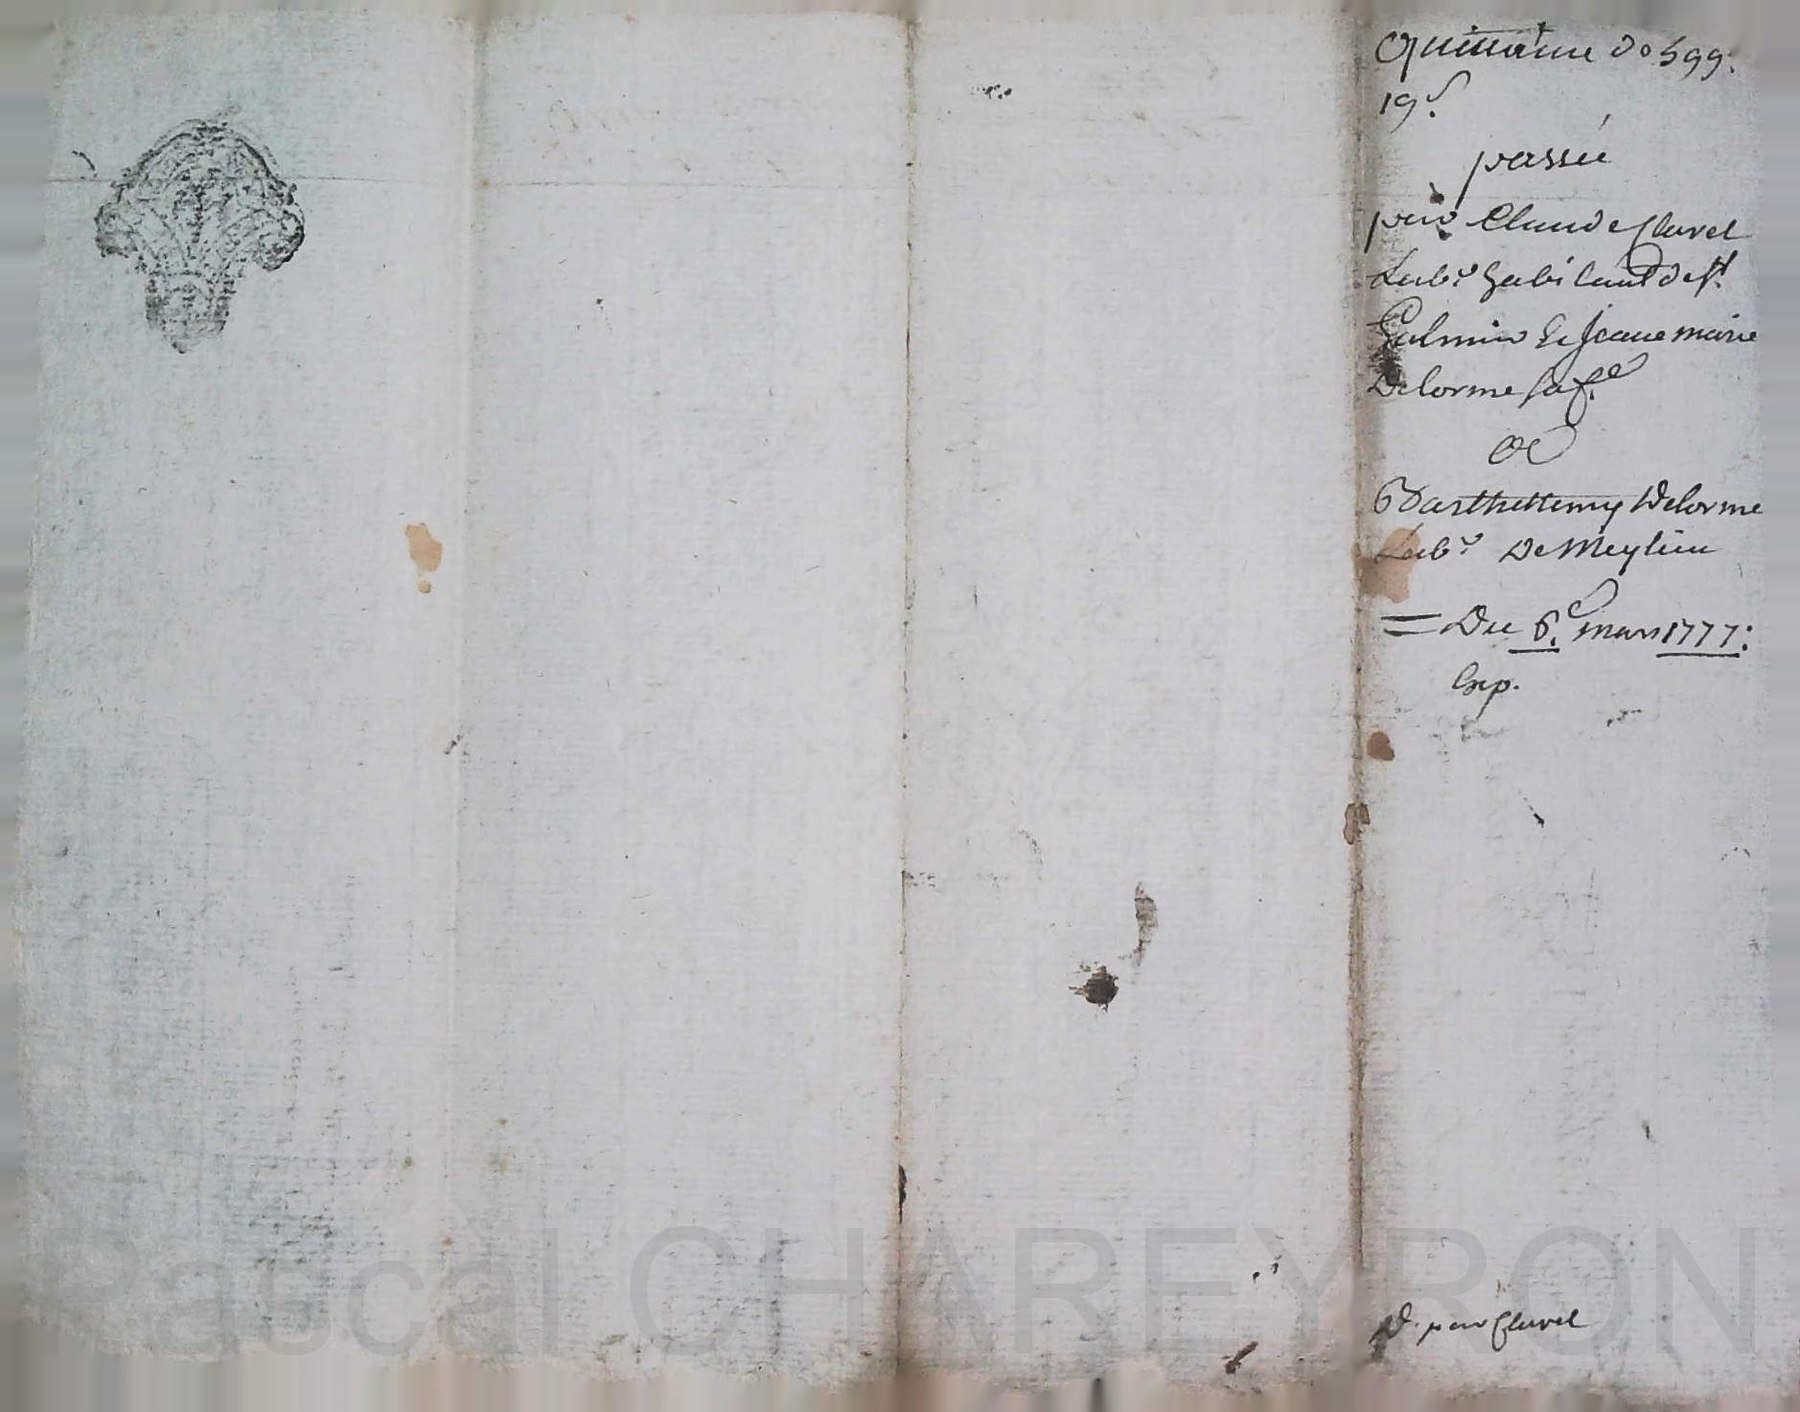 Quittance de 599:
19ˢ.
passée
par Claude Clavel
Labʳ habitant de Sᵗ
Galmier Et Jeane marie
Delorme sa fᵉ
a
Barthellemy Delorme
Labʳ De Meylieu
= Du 6.ᵉ mars 1777:
Exp.
d. par Clavel
Pascal CHAREYRON